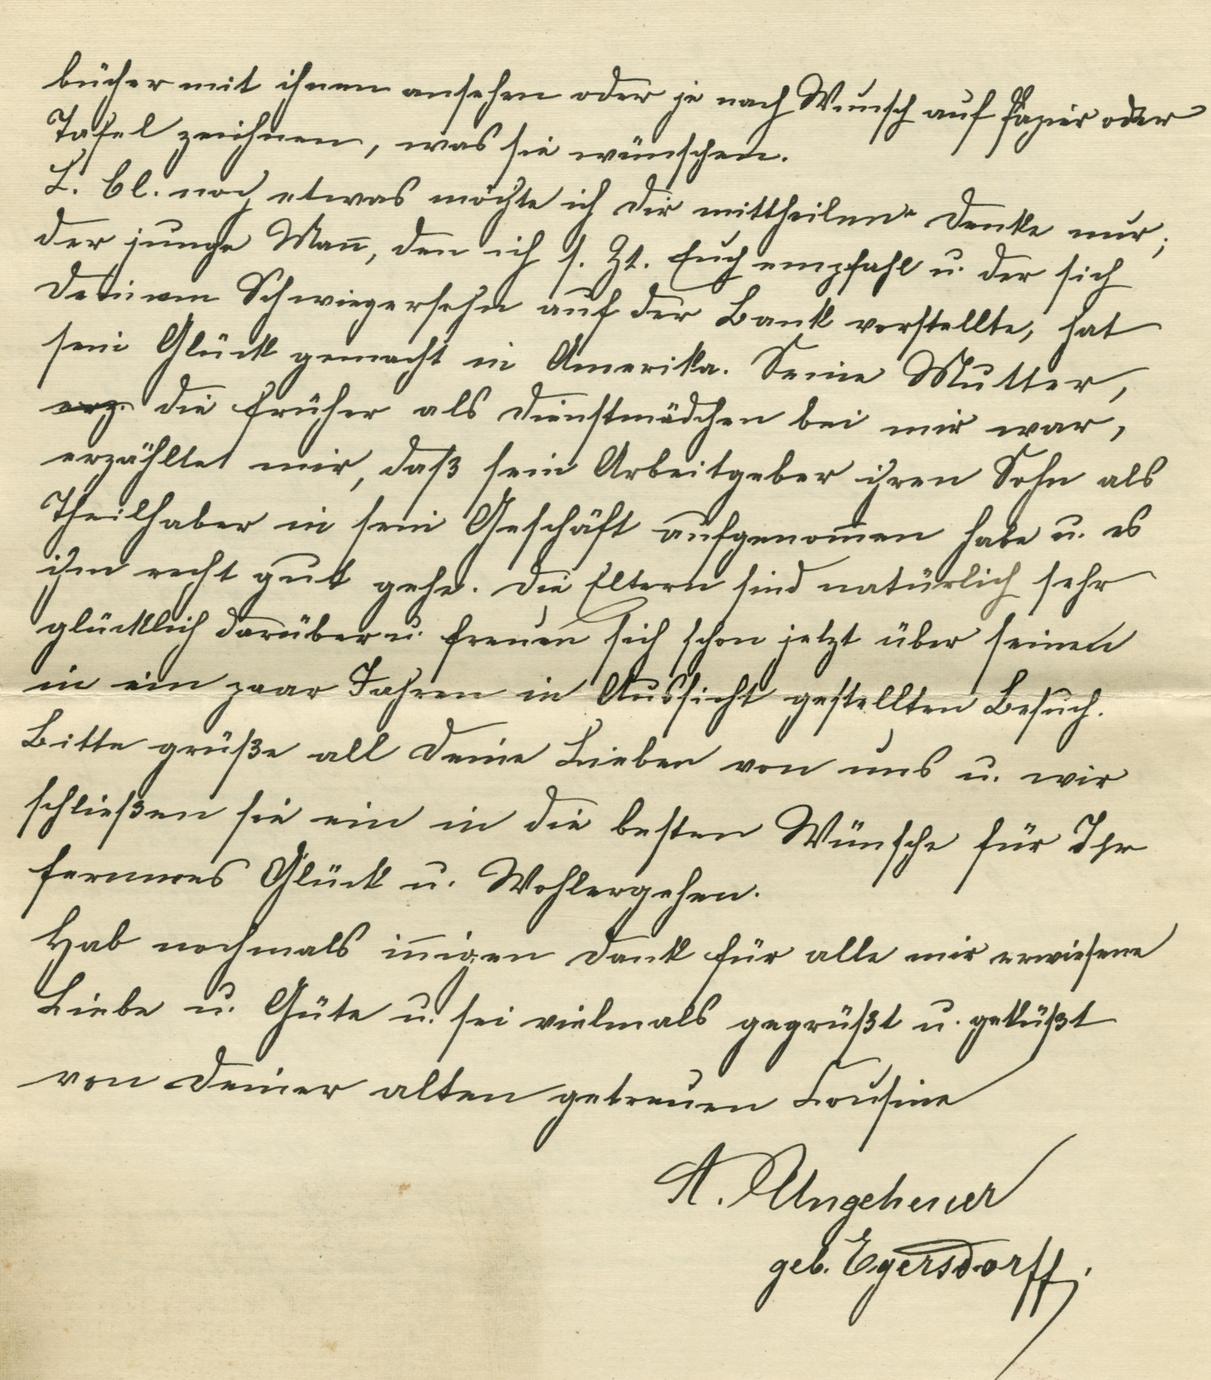 bücher mit ihnen ansehen oder je nach Wunsch auf Papier oder
Tafel zeichnen, was sie wünschen.
L. Cl. noch etwas möchte ich Dir mittheilen. Denke nur,
der junge Mañ, den ich s. Zt. Euch empfahl u. der sich
Deinem Schwiegersohn auf der Bank vorstellte, hat
sein Glück gemacht in Amerika. Seine Mutter,
erz. die früher als Dienstmädchen bei mir war,
erzählte mir, daß sein Arbeitgeber ihren Sohn als
Theilhaber in sein Geschäft aufgenom̄en habe u. es
ihm recht gut gehe. Die Eltern sind natürlich sehr
glücklich darüber u. freuen sich schon jetzt über seinen
in ein paar Jahren in Aussicht gestellten Besuch.
Bitte grüße all Deine Lieben von uns u. wir
schließen sie ein in die besten Wünsche für Ihr
ferneres Glück u. Wohlergehen.
Hab nochmals iñigen Dank für alle mir erwiesene
Liebe u. Güte u. sei vielmals gegrüßt u. geküßt
von Deiner alten getreuen Cousine
A. Ungeheuer
geb. Egersdorff.